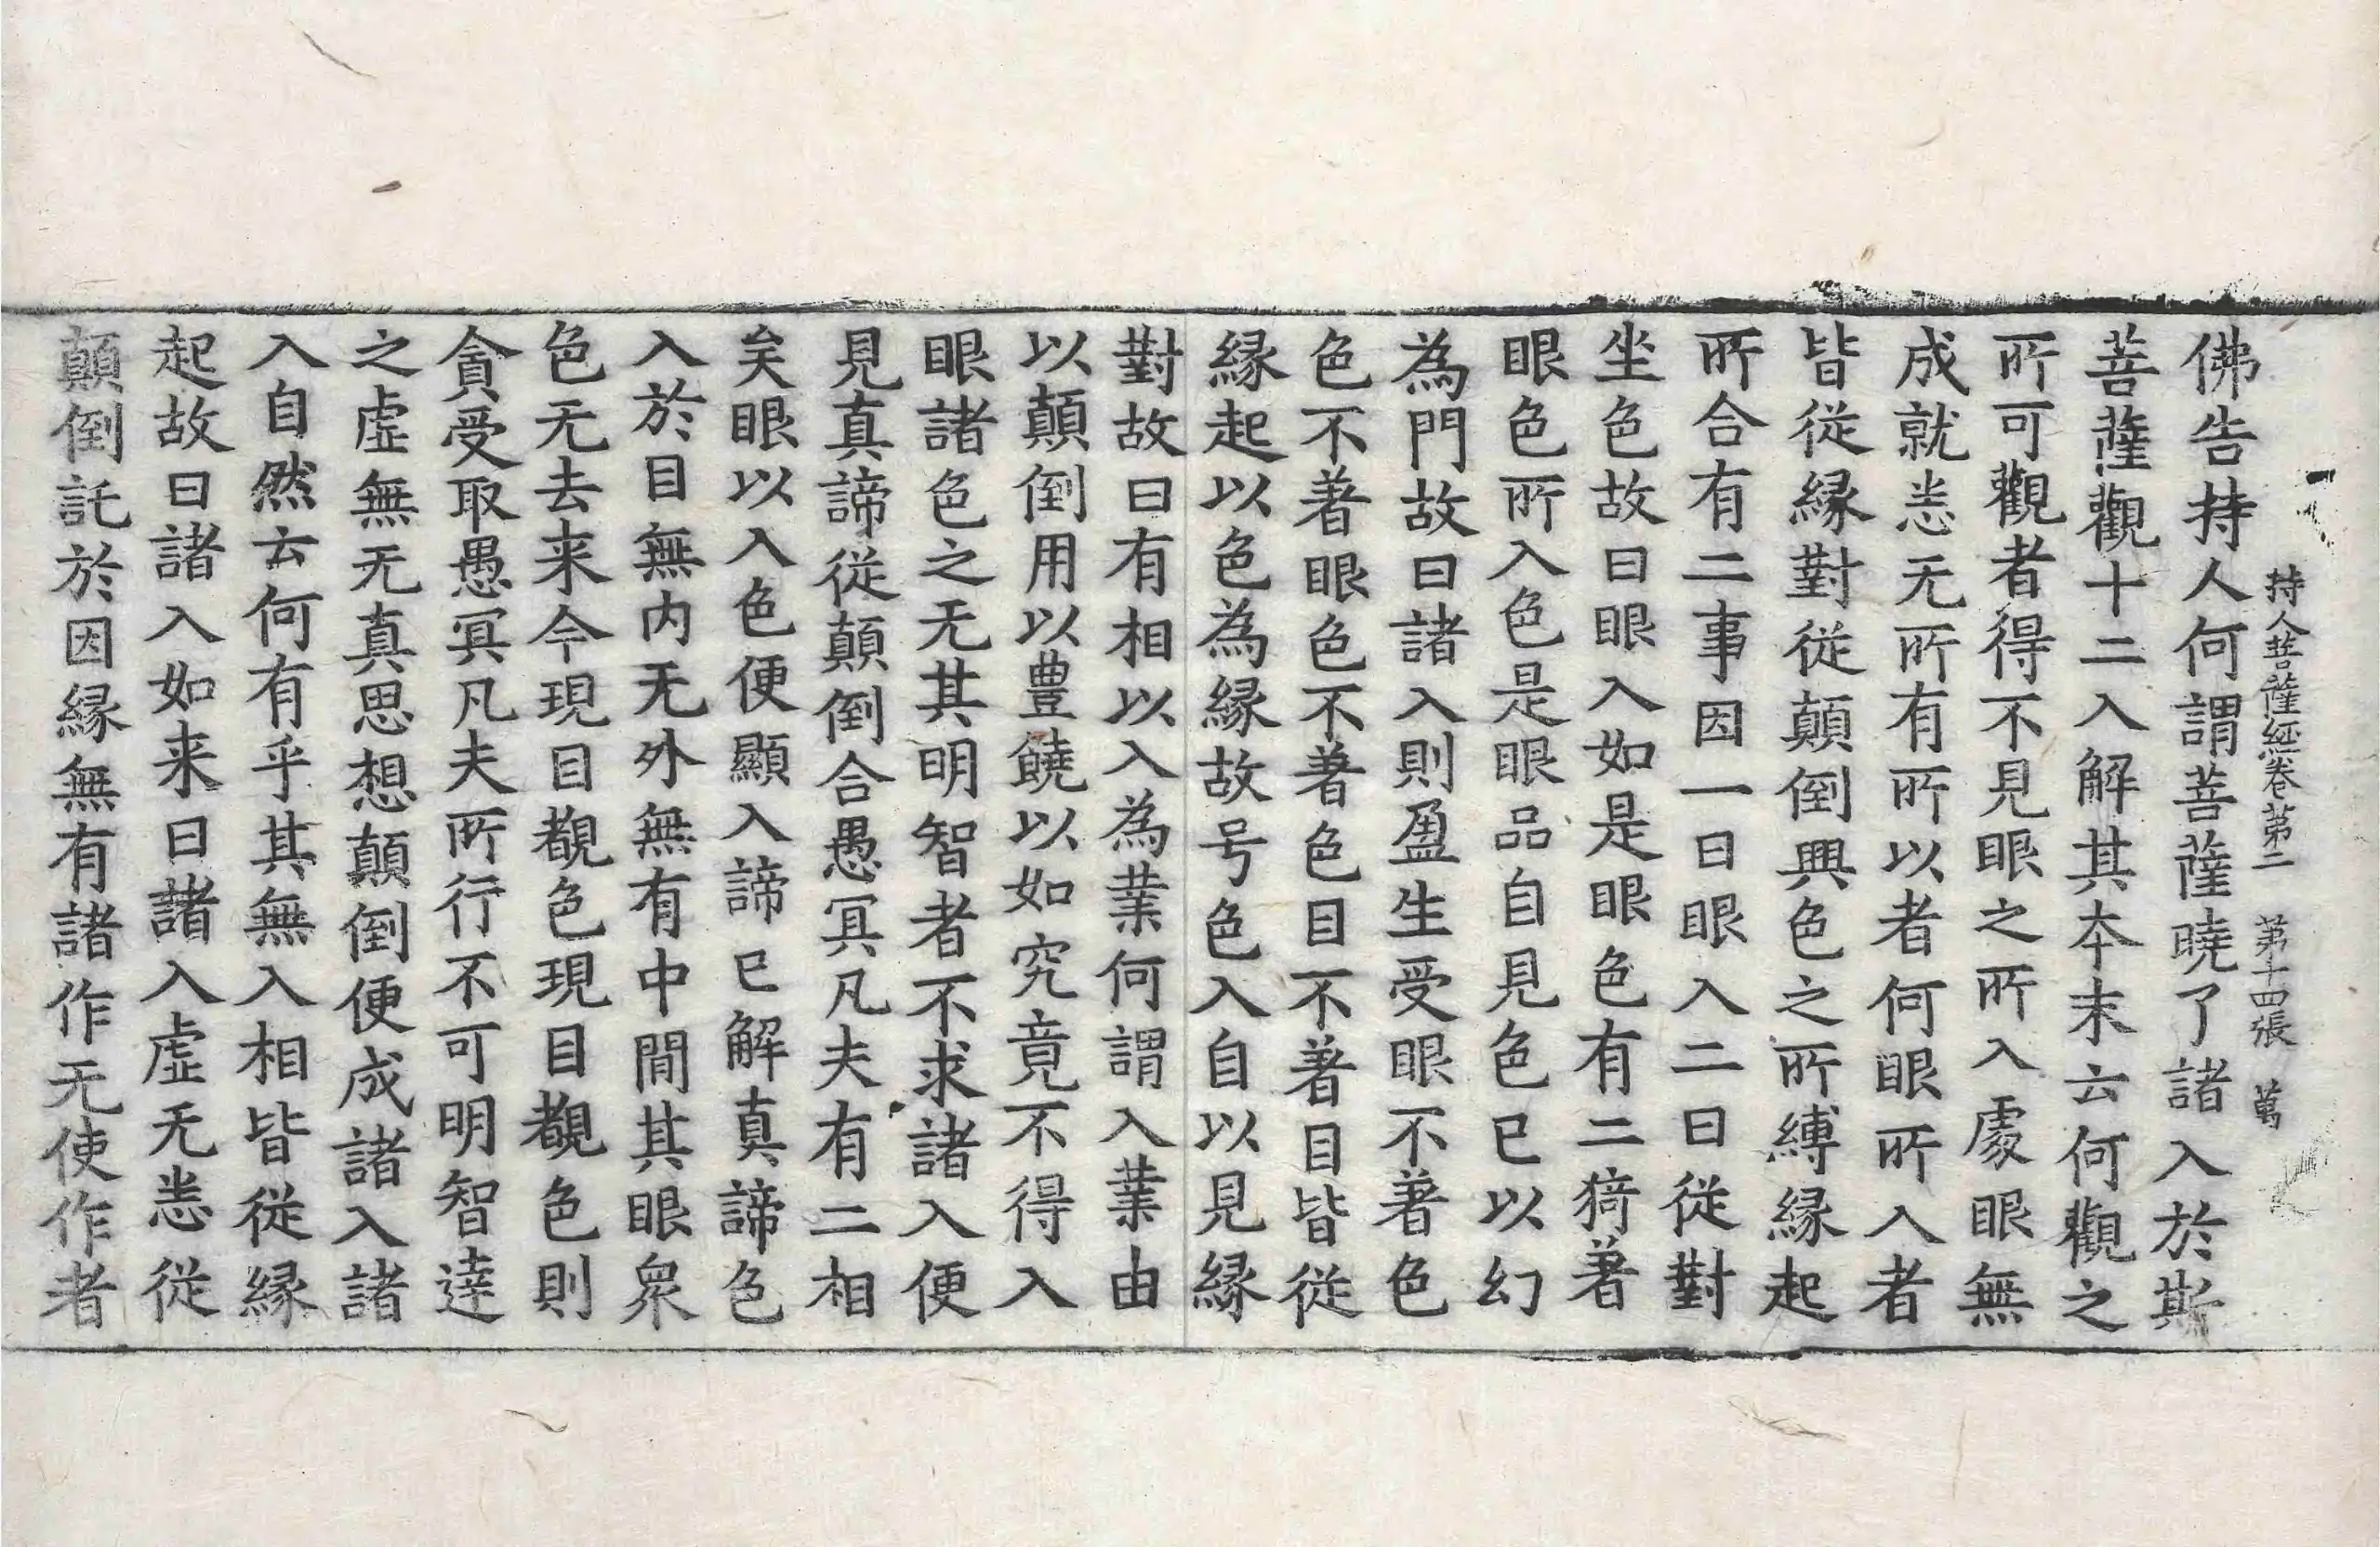 持人菩薩經卷第二 第十四張 萬
佛告持人何謂菩薩曉了諸入於斯
菩薩觀十二入解其夲末云何觀之
所可觀者得不見眼之所入處眼無
成就悉无所有所以者何眼所入者
皆從縁對從顛倒興色之所縛縁起
所合有二事因一曰眼入二曰從對
坐色故曰眼入如是眼色有二猗著
眼色所入色是眼品自見色已以幻
為門故曰諸入則盈生受眼不著色
色不著眼色不著色目不著目皆從
縁起以色為縁故号色入自以見縁
對故曰有相以入為業何謂入業由
以顛倒用以豊饒以如究竟不得入
眼諸色之无其明智者不求諸入便
見真諦從顛倒合愚冥凡夫有二相
矣眼以入色便顯入諦已解真諦色
入於目無内无外無有中間其眼衆
色无去来今現目覩色現目覩色則
貪受取愚冥凡夫所行不可明智達
之虛無无真思想顛倒便成諸入諸
入自然云何有乎其無入相皆從縁
起故曰諸入如来曰諸入虛无悉從
顛倒託於因縁無有諸作无使作者